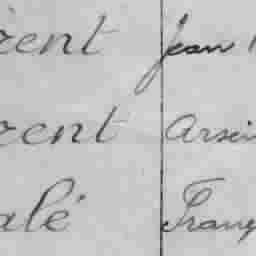 rent Jean
rent Arsèn
alé Franç